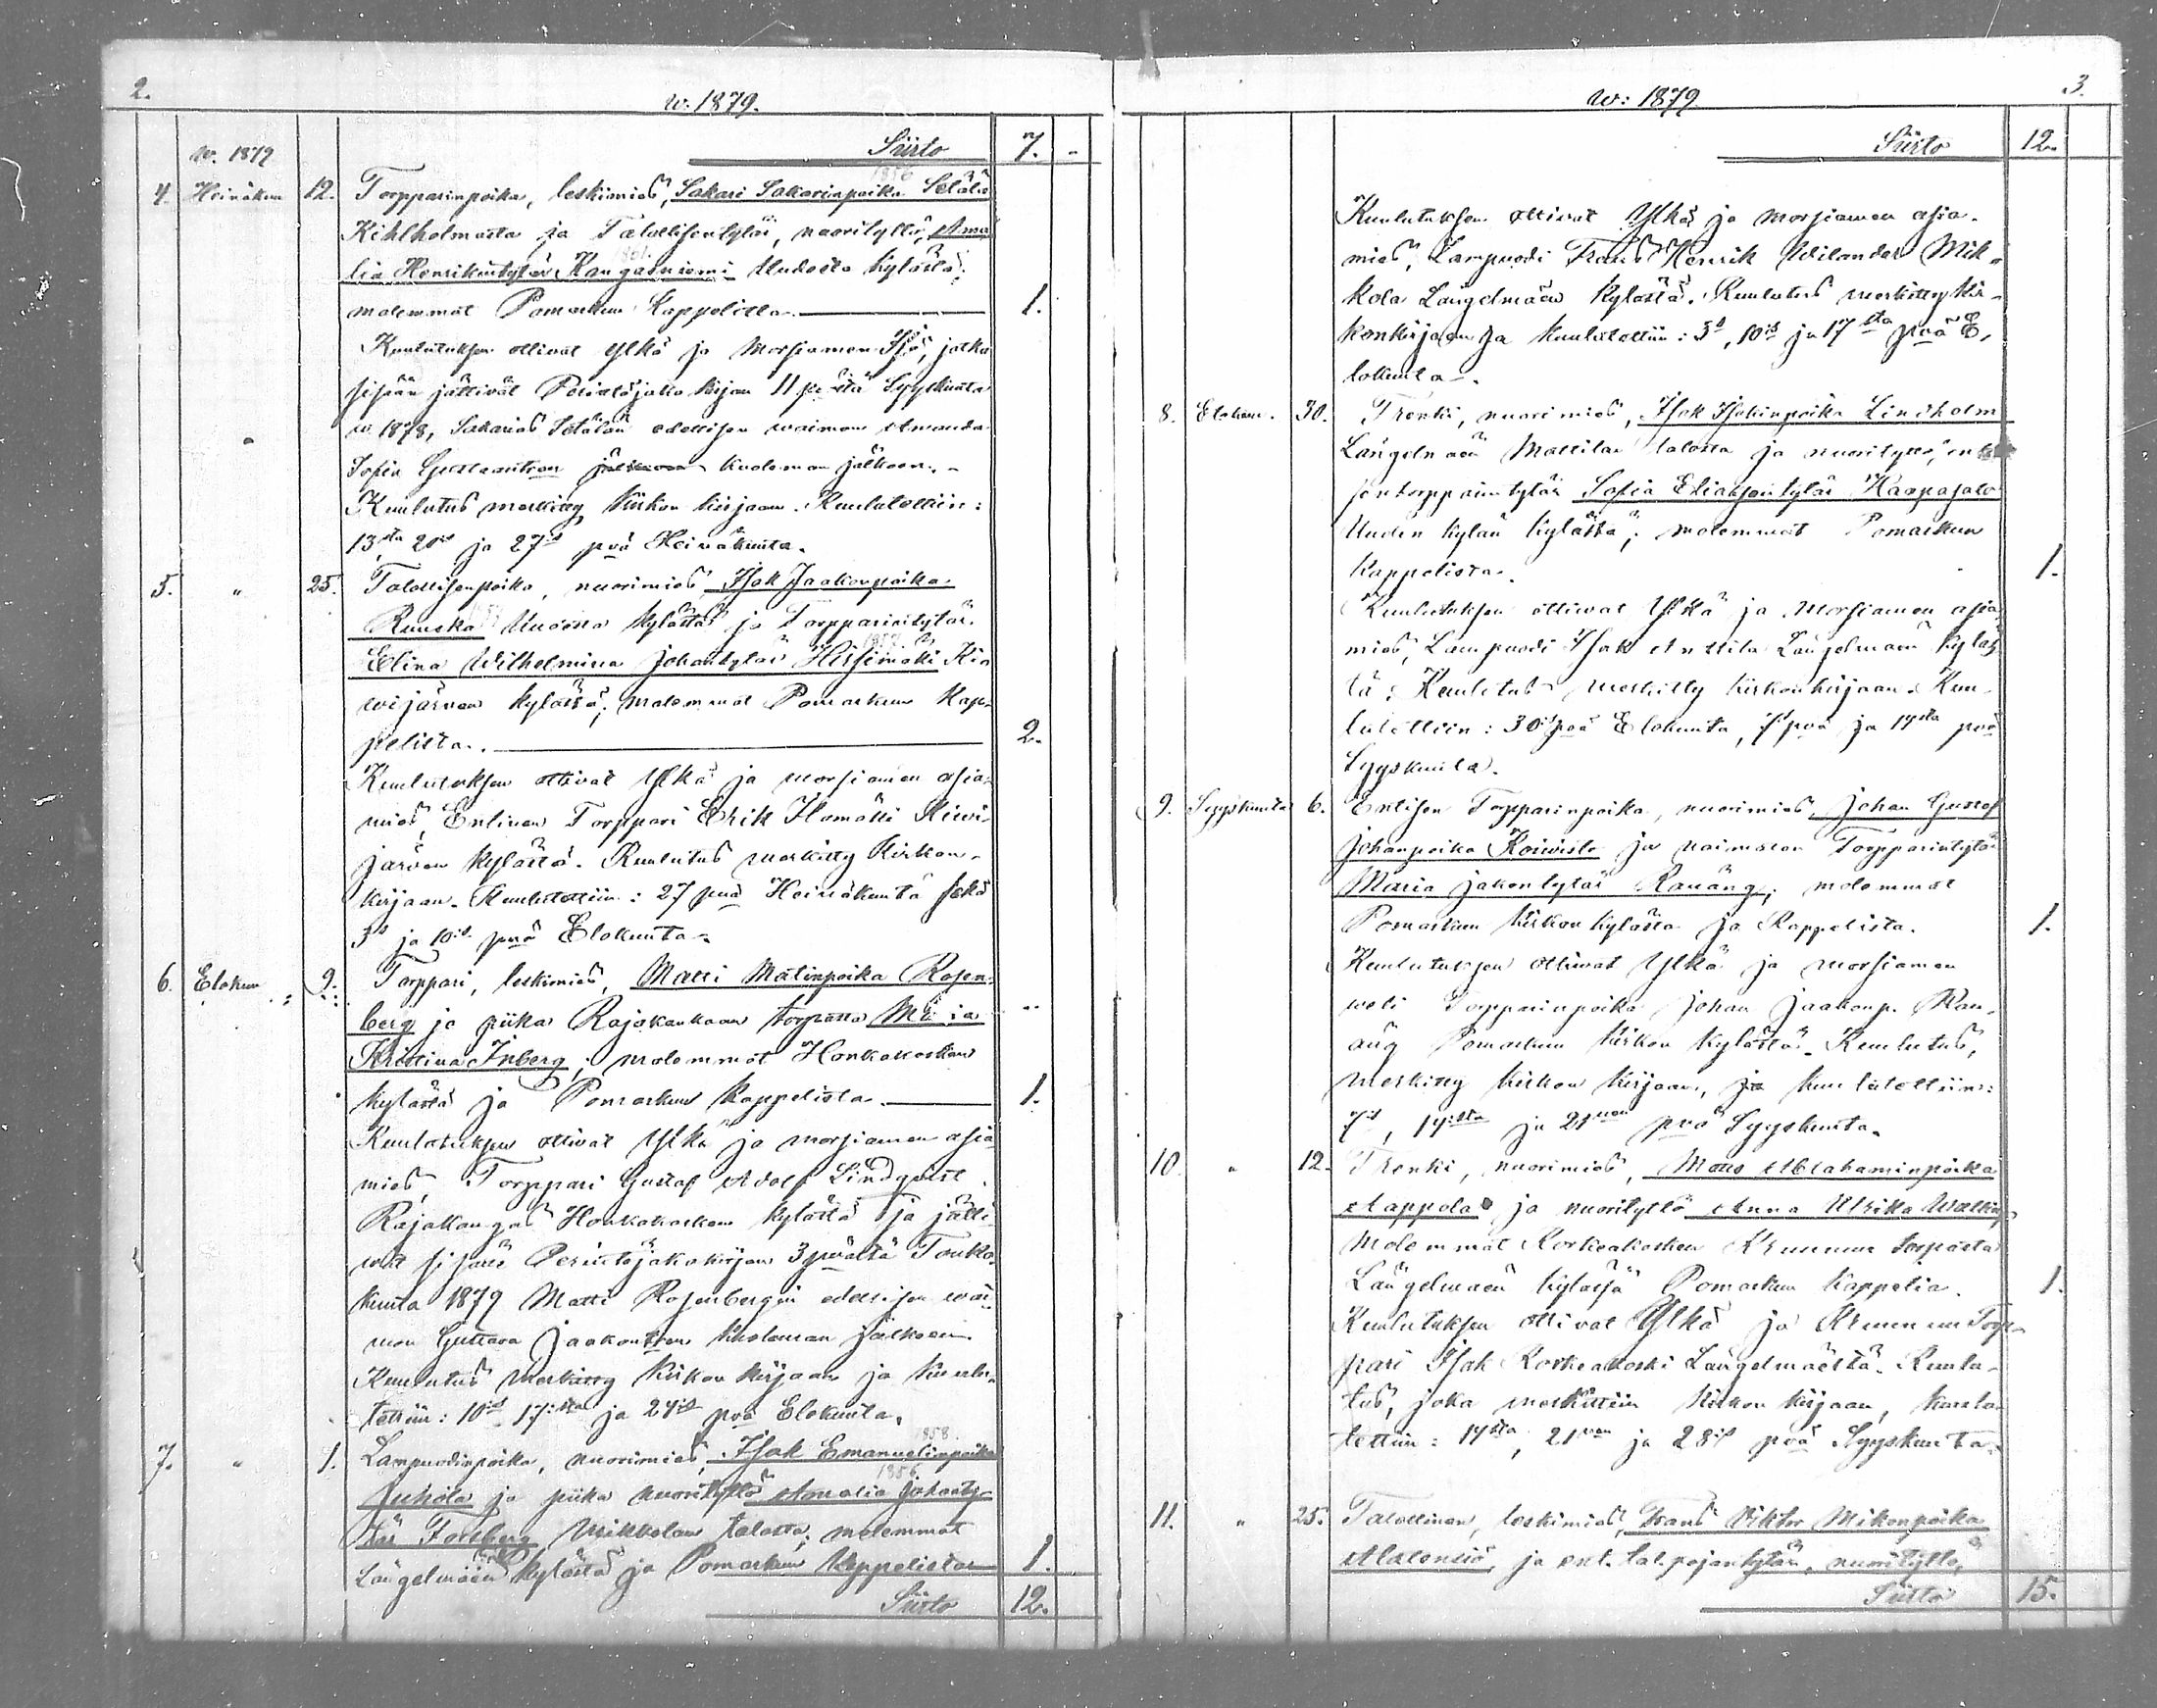 2.
w. 1879.
w. 1879
Siirto 7. -
1856
4. Heinäkuu 12. Torpparinpoika, leskimies, Sakari Sakarinpoika Setälä
Kihlholmasta ja Talollisentytär, nuorityttö, Ama
1861.
lia Henrikintytär Kangasniemi Uudesta kylästä;
molemmat Pomarkun Kappelista. 1.
Kuulutuksen ottivat Ylkä ja Morsiamen Isä, jotka
sisään jättivät Perintöjako kirjan 11 p:stä Syyskuuta
w. 1878, Sakarias Setälän edellisen waimon Amanda
Sofia Gustaantren kuoleman jälkeen. -
Kuulutus merkitty Kirkon kirjaan. Kuulutettiin:
13sta 20is ja 27is pvä Heinäkuuta.
5. " 25. Talollisenpoika, nuorimies, Isak Jaakonpoika
Ruuska Uudesta kylästä ja Torpparintytär
1857.
Elina Wilhelmina Johantytär Hirsimäki Ki
wijärven kylästä; molemmat Pomarkun Kap-
pelista. 2.
Kuulutuksen ottivat Ylkä ja morsiamen asia-
mies, Entinen Torppari Erik Ilomäki Kiwi-
järven kylästä. Kuulutus merkitty Kirkon-
kirjaan. Kuulutettiin: 27 pnä Heinäkuuta sekä
3s ja 10is pnä Elokuuta.
6. Elokuu 9. Torppari, leskimies, Matti Matinpoika Rosen-
berg ja piika Rajakankaan torpasta Maria
Kristina Inberg; molemmat Honkakosken
kylästä ja Pomarkun Kappelista. 1.
Kuulutuksen ottivat Ylkä ja morsiamen asia
mies, Torppari Gustaf Adolf Lindqvist
Rajakangas Honkakosken kylästä ja jätti
wät sisään Perintöjakokirjan 3 pvästä Touko-
kuuta 1879 Matti Rosenbergin edellisen wai-
mon Gustava Jaakontren kuoleman jälkeen.
Kuulutus merkitty Kirkon kirjaan ja kuulu-
tettiin: 10is 17:sta ja 24is pvä Elokuuta.
1858.
7. " 1. Lampuodinpoika, nuorimies, Isak Emanuelinpoika
1856.
Juhola ja piika nuorityttö Amalia Johanty-
tär Forsberg Mikkolan talosta; molemmat
Längelmäen kylästä ja Pomarkun Kappelista 1.
Siirto 12.
3.
w: 1879
Siirto 12.
Kuulutuksen ottivat Ylkä ja morsiamen asia-
mies, Lampuodi Frans Henrik Wilander Mik-
kola Längelmäen kylästä. Kuulutus merkitty kir-
konkirjaan ja kuulutettiin: 3s, 10is ja 17sta pvä E,
lokuuta.
8. Elokuu. 30. Trenki, nuorimies, Isak Isakinpoika Lindholm
Längelmäen Mattilan talosta ja nuorityttö, en
sentorpparintytär Sofia Eliaksentytär Haapasalo
Uuden kylän kylästä; molemmat Pomarkun
Kappelista. 1.
Kuulutuksen ottivat Ylkä ja Morsiamen asia
mies, Lampuodi Isak Anttila Längelmäen kyläs
tä. Kuulutus merkitty kirkonkirjaan. Kuu-
lutettiin: 30is pvä Elokuuta, 7s pvä ja 14sta pvä
Syyskuuta.
9. Syyskuuta 6. Entisen Torpparinpoika, nuorimies, Johan Gustaf
Johanpoika Koiwisto ja naimaton Torpparintytär
Maria Jakontytär Rauäng; molemmat
Pomarkun kirkon kylästä ja Kappelista. 1.
Kuulutuksen ottivat Ylkä ja morsiamen
weli Torpparinpoika Johan Jaakonp. Rau-
äng Pomarkun kirkon kylästä. Kuulutus,
merkitty kirkon kirjaan, ja kuulutettiin:
7s, 14:sta ja 21nen pvä Syyskuuta.
10. " 12. Trenki, nuorimies, Matts Abrahaminpoika
Aappola ja nuorityttö Anna Ulrika Walling
Molemmat Korkeakosken Kruunun torpasta
Längelmäen kylässä Pomarkun kappelia. 1.
Kuulutuksen ottivat Ylkä ja Kruunun Torp-
pari Isak Korkeakoski Längelmäestä. Kuulu-
tus, joka merkittiin Kirkon kirjaan, kuulu-
tettiin: 14sta, 21nen ja 28is pvä Syyskuuta.
11. " 25. Talollinen, leskimies, Frans Viktor Mikonpoika
ja ent. tal. pojantytär, nuorityttö,
Siirto 15.